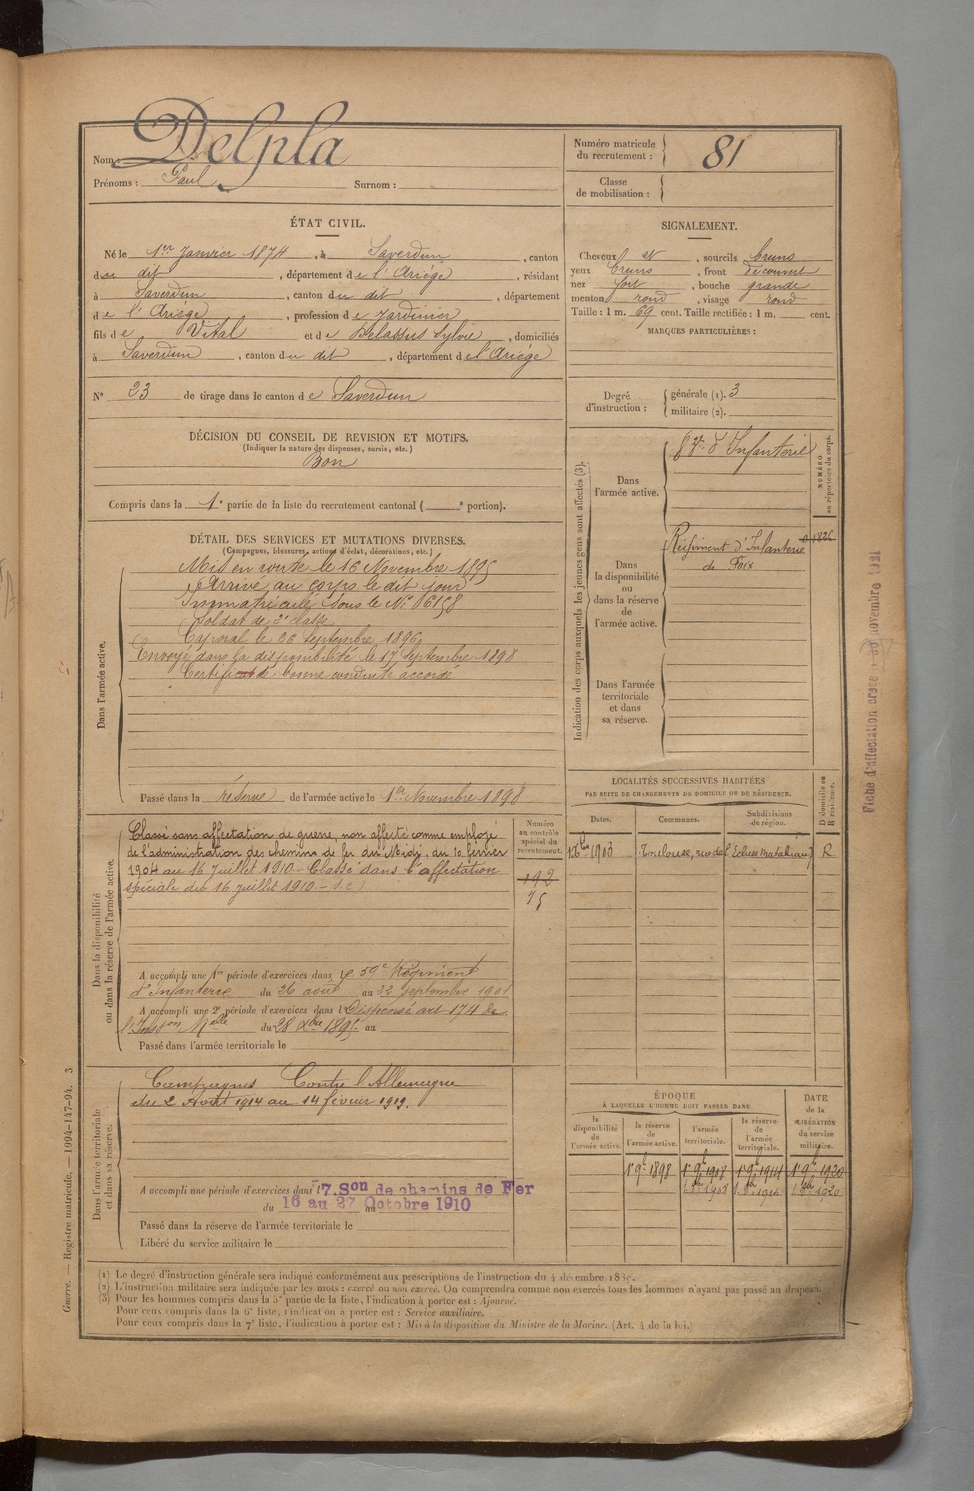 Nom : Delpla
Prénoms : Paul Surnom :
Numéro matricule du recrutement : 81
Classe de mobilisation :
ÉTAT CIVIL.
Né le 1er Janvier 1874, à Saverdun, canton
du dit, département de l'Ariége, résidant
à Saverdun, canton du dit, département
de l'Ariége, profession de Jardinier
fils de Vital et de Delassus Sylvie, domiciliés
à Saverdun, canton du dit, département de l'Ariége
N° 23 de tirage dans le canton de Saverdun
DÉCISION DU CONSEIL DE REVISION ET MOTIFS.
(Indiquer la nature des dispenses, sursis, etc.)
Bon
Compris dans la 1e partie de la liste du recrutement cantonal ( e portion).
SIGNALEMENT.
Cheveux et, sourcils bruns
yeux bruns, front découvert
nez fort, bouche grande
menton rond, visage rond
Taille : 1 m. 69 cent. Taille rectifiée : 1 m. cent.
MARQUES PARTICULIÈRES :
Degré d'instruction : générale (1). 3
militaire (2).
DÉTAIL DES SERVICES ET MUTATIONS DIVERSES.
(Campagnes, blessures, actions d'éclat, décorations, etc.)
Dans l'armée active.
Mis en route le 16 Novembre 1895
Arrivé au corps le dit jour
Immatriculé sous le N°
Soldat de 2e classe
Caporal le 26 Septembre 1896
Envoyé dans la disponibilité le 17 Septembre 1898
Certificat de bonne conduite accordé
Passé dans la réserve de l'armée active le 1er Novembre 1898
Indication des corps auxquels les jeunes gens sont affectés (3).
NUMÉRO au répertoire du corps.
Dans l'armée active.
d'Infanterie
Dans la disponibilité ou dans la réserve de l'armée active.
Régiment d'Infanterie
de Foix
Dans l'armée territoriale et dans sa réserve.
Fiche d'affectation créée le novembre 1921
Dans la disponibilité ou dans la réserve de l'armée active.
Classé sans affectation de guerre, non affecté comme employé
de l'administration des chemins de fer du Midi, du 10 février
1904 au 16 juillet 1910 - Classé dans l'affectation
spéciale du 16 juillet 1910 - S.C.
Numéro au contrôle spécial du recrutement.
192
75
A accompli une 1re période d'exercices dans le 59e Régiment
d'Infanterie du 26 août au 22 septembre 1901
A accompli une 2e période d'exercices dans l Dispensé art 174 de
l'Inson Melle du 28 Xbre 1895 au
Passé dans l'armée territoriale le
LOCALITÉS SUCCESSIVES HABITÉES
PAR SUITE DE CHANGEMENTS DE DOMICILE OU DE RÉSIDENCE.
Dates. Communes. Subdivisions de région. D domicile ou R résidence.
1903 Toulouse, rue de l'Echues R
Dans l'armée territoriale et dans sa réserve.
Campagnes Contre l'Allemagne
du 2 Août 1914 au 14 février 1919.
A accompli une période d'exercices dans l 7.Son de chemins de Fer
du 16 au 27 Octobre 1910
Passé dans la réserve de l'armée territoriale le
Libéré du service militaire le
ÉPOQUE
À LAQUELLE L'HOMME DOIT PASSER DANS
la disponibilité de l'armée active. la réserve de l'armée active. l'armée territoriale. la réserve de l'armée territoriale. DATE de la LIBÉRATION du service militaire.
1898 1908 1914 1920
1908 1914 1920
(1) Le degré d'instruction générale sera indiqué conformément aux prescriptions de l'instruction du 4 décembre
(2) L'instruction militaire sera indiquée par les mots : exercé ou non exercé. On comprendra comme non exercés tous les hommes n'ayant pas passé au drapeau.
(3) Pour les hommes compris dans la 5e partie de la liste, l'indication à porter est : Ajourné.
Pour ceux compris dans la 6e liste, l'indication à porter est : Service auxiliaire.
Pour ceux compris dans la 7e liste, l'indication à porter est : Mis à la disposition du Ministre de la Marine. (Art. 4 de la loi.)
Guerre. — Registre matricule. — 1994-147-94. 3